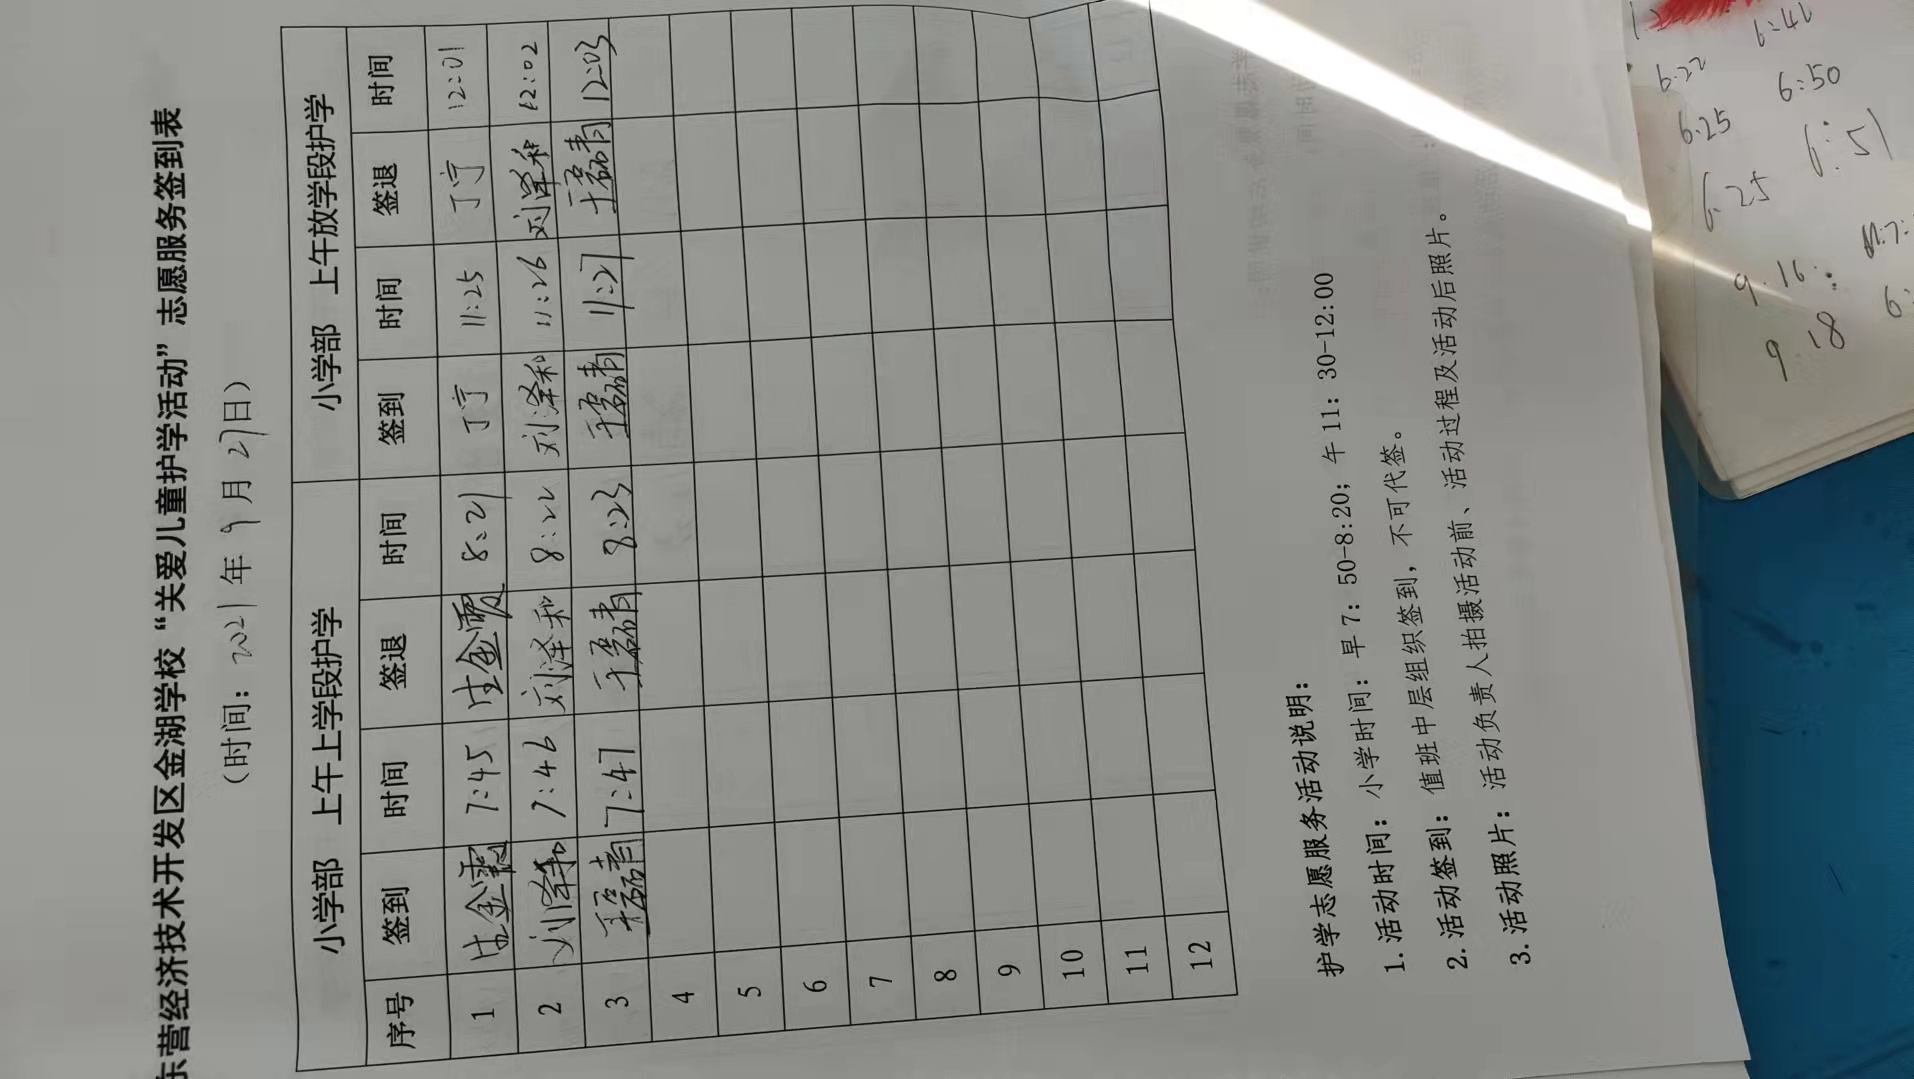 东营经济技术开发区金湖学校“关爱儿童护学活动”志愿服务签到表
（时间：2021年9月27日）
小学部 上午上学段护学 小学部 上午放学段护学
序号 签到 时间 签退 时间 签到 时间 签退 时间
1 金霞 7:45 金霞 8:21 丁宁 11:25 丁宁 12:01
2 刘泽和 7:46 刘泽和 8:22 刘泽和 11:26 刘泽和 12:02
3 王磊青 7:47 王磊青 8:23 王磊青 11:27 王磊青 12:03
4
5
6
7
8
9
10
11
12
护学志愿服务活动说明：
1.活动时间：小学时间：早7：50-8:20；午11：30-12:00
2.活动签到：值班中层组织签到，不可代签。
3.活动照片：活动负责人拍摄活动前、活动过程及活动后照片。
6:41
6.22
6:50
6.25
6:51
6.25
9.16
9.18